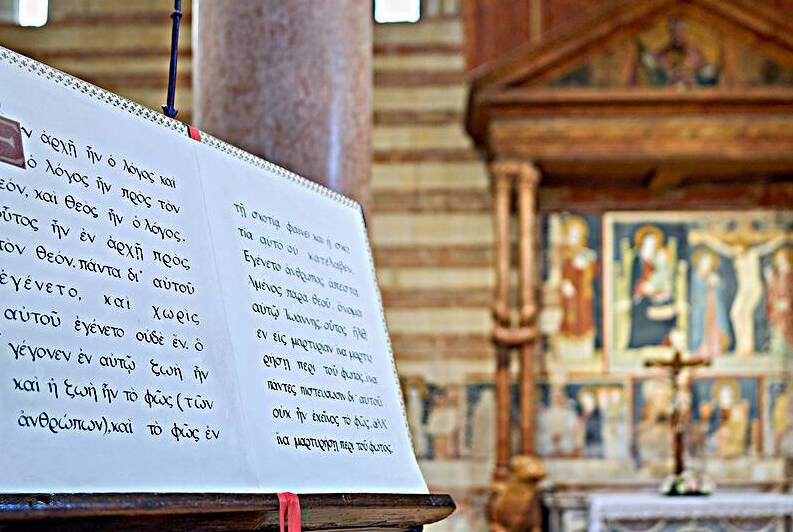 ν ἀρχῇ ἦν ὁ λόγος καὶ
ὁ λόγος ἦν πρὸς τὸν
εόν, καὶ θεὸς ἦν ὁ λόγος.
οὗτος ἦν ἐν ἀρχῇ πρὸς
τὸν θεόν. πάντα δι' αὐτοῦ
ἐγένετο, καὶ χωρὶς
αὐτοῦ ἐγένετο οὐδὲ ἕν. ὃ
γέγονεν ἐν αὐτῷ ζωὴ ἦν
καὶ ἡ ζωὴ ἦν τὸ φῶς (τῶν
ἀνθρώπων), καὶ τὸ φῶς ἐν
τῇ σκοτίᾳ φαίνει καὶ ἡ σκο
τία αὐτὸ οὐ κατέλαβεν.
Εγένετο ἄνθρωπος ἀπεστα
λμένος παρὰ θεοῦ, ὄνομα
αὐτῷ Ἰωάννης. οὗτος ἦλθ
εν εἰς μαρτυρίαν ἵνα μαρτυ
ρήσῃ περὶ τοῦ φωτός, ἵνα
πάντες πιστεύσωσιν δι' αὐτοῦ
οὐκ ἦν ἐκεῖνος τὸ φῶς, ἀλλ'
ἵνα μαρτυρήσῃ περὶ τοῦ φωτός.